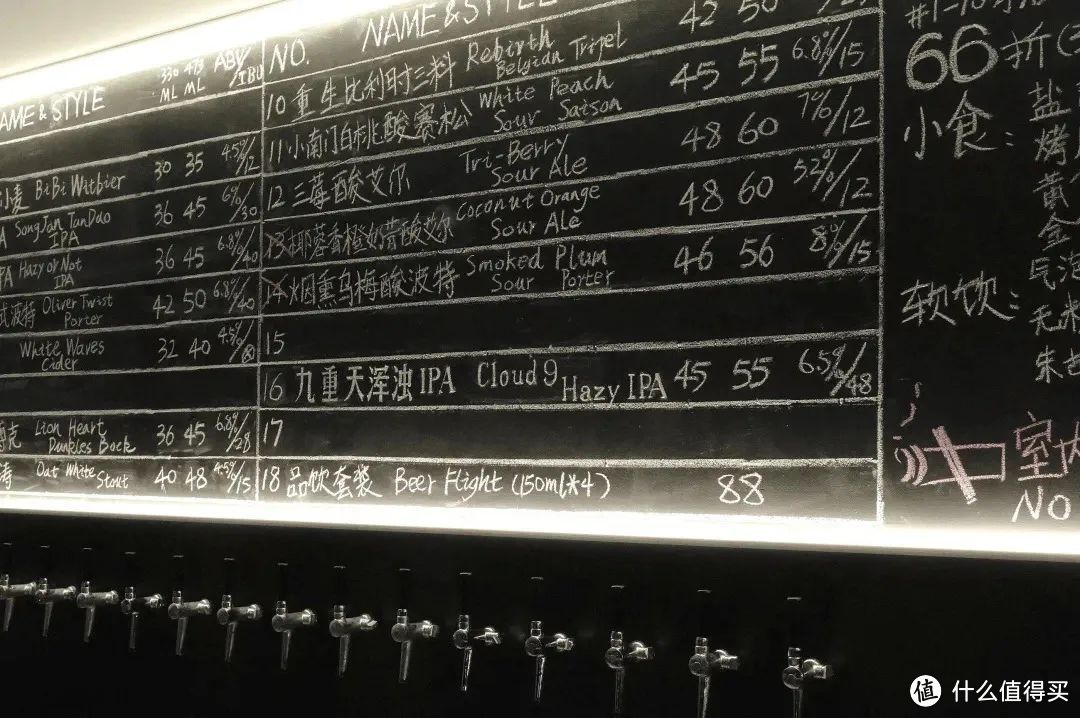 NAME & STYLE
330 ML
473 ML
ABV/IBU
小麦 BiBi Witbier 30 35 4.5%/12
SongJan TanDao IPA 36 45 6%/30
Hazy or Not IPA 36 45 6.8%/40
式波特 Oliver Twist Porter 42 50 6.8%/40
White Waves Cider 32 40 4.5%/
克 Lion Heart Dunkles Bock 36 45 6.8%/28
涛 Oat White Stout 40 48 4.5%/15
NO. NAME & STYLE
10 重生比利时三料 Rebirth Belgian Tripel 42 50
11 小南门白桃酸赛松 White Peach Sour Saison 45 55 6.8%/15
12 三莓酸艾尔 Tri-Berry Sour Ale 48 60 7%/12
13 椰蓉香橙奶昔酸艾尔 Coconut Orange Sour Ale 48 60 5.2%/12
14 烟熏乌梅酸波特 Smoked Plum Sour Porter 46 56 8%/15
15
16 九重天浑浊IPA Cloud 9 Hazy IPA 45 55 6.5%/48
17
18 品饮套装 Beer Flight (150ml*4) 88
66折
小食:
盐
烤
黄
金
软饮:
气泡
无
朱
室内
NO
值 什么值得买